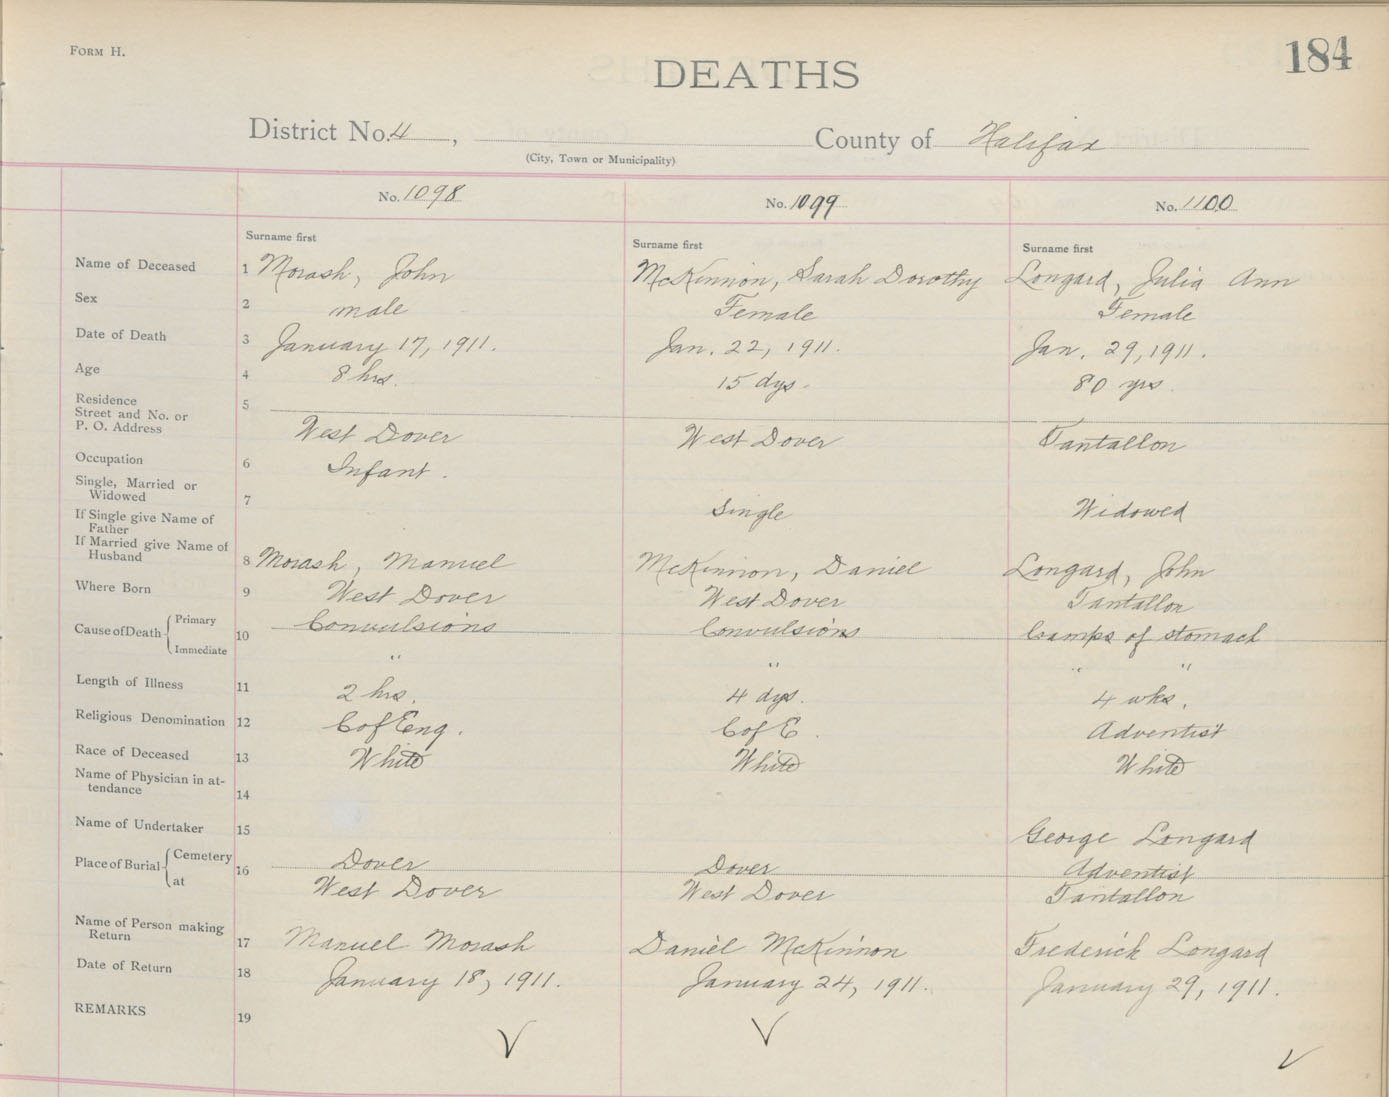 FORM H.
184
DEATHS
District No. 4 , County of Halifax
(City, Town or Municipality)
No. 1098 No. 1099 No. 1100
Surname first Surname first Surname first
Name of Deceased 1 Morash, John McKinnon, Sarah Dorothy Longard, Julia Ann
Sex 2 male Female Female
Date of Death 3 January 17, 1911. Jan. 22, 1911. Jan. 29, 1911.
Age 4 8 hrs. 15 dys. 80 yrs.
Residence
Street and No. or 5
P. O. Address West Dover West Dover Tantallon
Occupation 6 Infant.
Single, Married or
Widowed 7 Single Widowed
If Single give Name of
Father
If Married give Name of
Husband 8 Morash, Manuel McKinnon, Daniel Longard, John
Where Born 9 West Dover West Dover Tantallon
Cause of Death Primary 10 Convulsions Convulsions Camps of stomach
Immediate " " " "
Length of Illness 11 2 hrs. 4 dys. 4 wks.
Religious Denomination 12 C of Eng. C of E. Adventist
Race of Deceased 13 White White White
Name of Physician in at-
tendance 14
Name of Undertaker 15 George Longard
Place of Burial Cemetery 16 Dover Dover Adventist
at West Dover West Dover Tantallon
Name of Person making
Return 17 Manuel Morash Daniel McKinnon Frederick Longard
Date of Return 18 January 18, 1911. January 24, 1911. January 29, 1911.
REMARKS 19